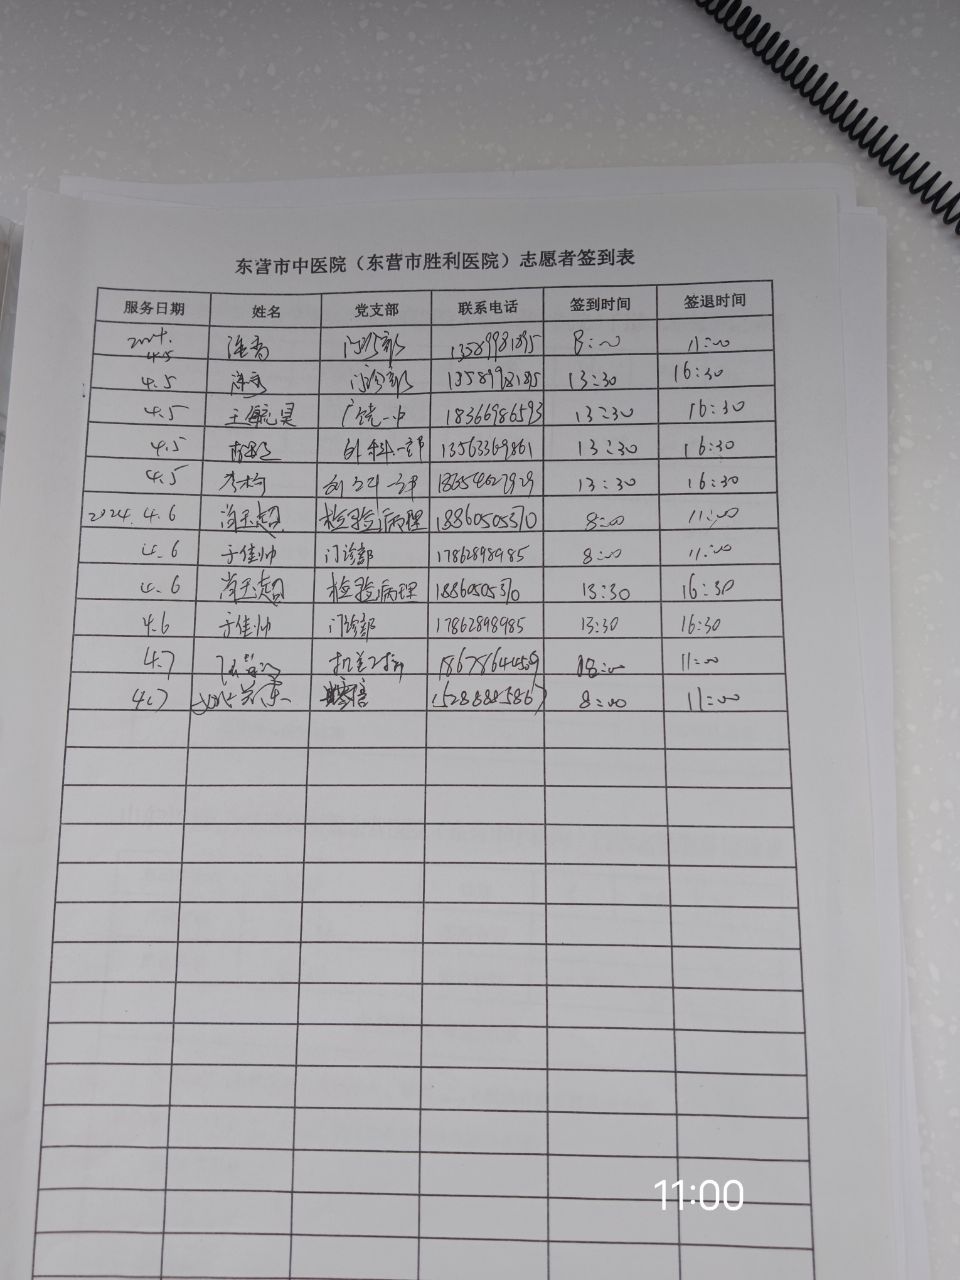 东营市中医院（东营市胜利医院）志愿者签到表
服务日期 姓名 党支部 联系电话 签到时间 签退时间
2024.4.5 门诊部 13589981895 8:00 11:00
4.5 门诊部 13589981895 13:30 16:30
4.5 王毓昊 广饶一中 18366986593 13:30 16:30
4.5 外科一部 13563369861 13:30 16:30
4.5 18654627929 13:30 16:30
2024.4.6 检验病理 18860505370 8:00 11:00
4.6 于佳帅 门诊部 17862898985 8:00 11:00
4.6 检验病理 1886050570 13:30 16:30
4.6 于佳帅 门诊部 17862898985 13:30 16:30
4.7 8:00 11:00
4.7 15288885867 8:00 11:00
11:00